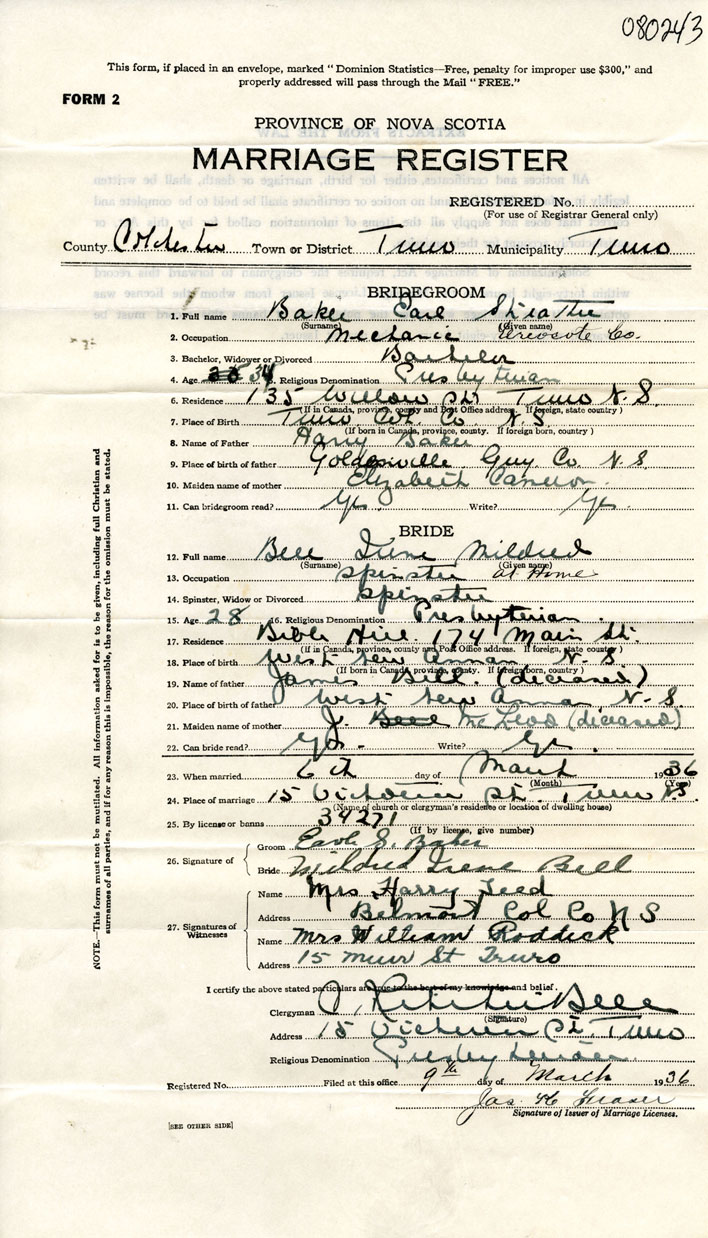 080243
This form, if placed in an envelope, marked "Dominion Statistics—Free, penalty for improper use $300," and
properly addressed will pass through the Mail "FREE."
FORM 2
PROVINCE OF NOVA SCOTIA
MARRIAGE REGISTER
REGISTERED No.
(For use of Registrar General only)
County Colchester Town or District Truro Municipality Truro
BRIDEGROOM
1. Full name Baker Earl
(Surname) (Given name)
2. Occupation Mechanic Creosote Co.
3. Bachelor, Widower or Divorced Bachelor
4. Age 34 5. Religious Denomination Presbyterian
6. Residence 135 Willow St. Truro N.S.
(If in Canada, province, county and Post Office address. If foreign, state country)
7. Place of Birth Truro Col. Co N.S.
(If born in Canada, province, county. If foreign born, country)
8. Name of Father Harry Baker
9. Place of birth of father Goldenville Guy. Co N.S
10. Maiden name of mother Elizabeth Cameron
11. Can bridegroom read? Yes. Write? Yes
BRIDE
12. Full name Bell Irene Mildred
(Surname) (Given name)
13. Occupation Spinster at Home
14. Spinster, Widow or Divorced Spinster
15. Age 28 16. Religious Denomination Presbyterian
17. Residence Bible Hill. 174 Main St.
(If in Canada, province, county and Post Office address. If foreign, state country)
18. Place of birth West New Annan N.S
(If born in Canada, province, county. If foreign born, country)
19. Name of father James Bell. (deceased)
20. Place of birth of father West New Annan N.S
21. Maiden name of mother J. McLeod (deceased)
22. Can bride read? Yes. Write? Yes
23. When married 6th day of March 1936
(Month) (Year)
24. Place of marriage 15 Victoria St. Truro N.S.
(Name of church or clergyman's residence or location of dwelling house)
25. By license or banns 34271
(If by license, give number)
26. Signature of Groom Earle S. Baker
Bride Mildred Irene Bell
27. Signatures of Witnesses Name Mrs. Harry Teed
Address Belmont Col Co N S
Name Mrs William Roddick
Address 15 Muir St Truro
I certify the above stated particulars are true to the best of my knowledge and belief.
Clergyman Bell
(Signature)
Address 15 Victoria St. Truro
Religious Denomination Presbyterian
Registered No. Filed at this office 9th day of March 1936
Jas. H. Fraser
Signature of Issuer of Marriage Licenses.
[SEE OTHER SIDE]
NOTE.—This form must not be mutilated. All information asked for is to be given, including full Christian and
surnames of all parties, and if for any reason this is impossible, the reason for the omission must be stated.